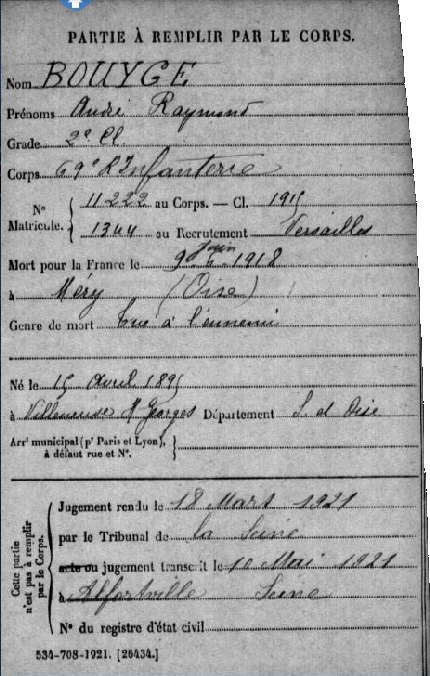 PARTIE À REMPLIR PAR LE CORPS.
Nom BOUYGE
Prénoms André Raymond
Grade 2e Cl
Corps 69e R Infanterie
N° Matricule. { 11222 au Corps. — Cl. 1915
1344 au Recrutement Versailles
Mort pour la France le 9 juin 1918
à Méry (Oise)
Genre de mort tué à l'ennemi
Né le 15 avril 1895
à Villeneuve St Georges Département S. et Oise
Arrt municipal (pr Paris et Lyon), à défaut rue et N°. }
Cette partie n'est pas à remplir par le Corps.
Jugement rendu le 18 Mars 1921
par le Tribunal de la Seine
acte ou jugement transcrit le 10 Mai 1921
à Alfortville Seine
N° du registre d'état civil
534-708-1921. [26434.]